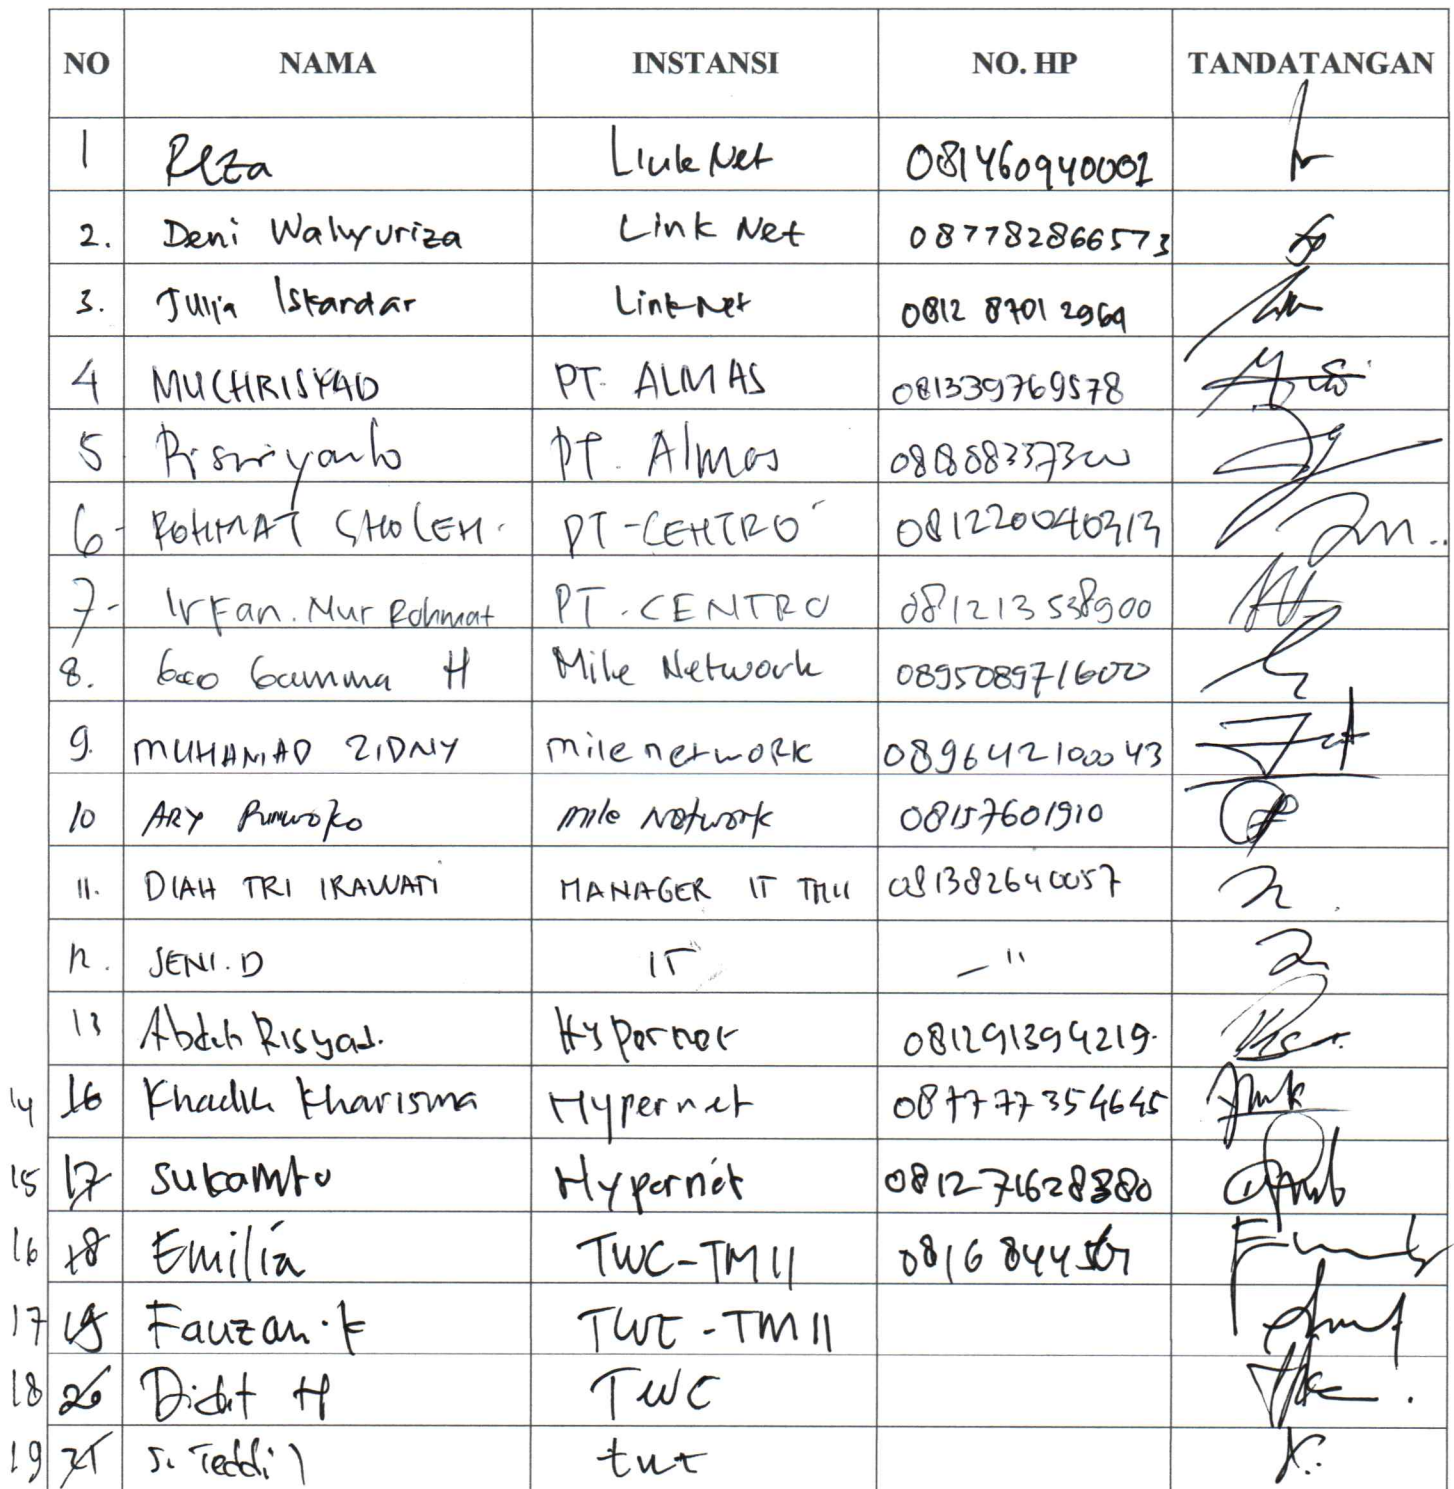 NO NAMA INSTANSI NO. HP TANDATANGAN
1 Reza Link Net 081460940001
2. Deni Wahyuriza Link Net 087782866573
3. Julia Iskandar LinkNet 0812 8701 2969
4 MUCHRISYAD PT. ALMAS 081339769578
5 Risriyanto PT. Almas
6- ROHMAT SHOLEH. PT-CENTRO 081220040313
7- Irfan. Nur Rohmat PT. CENTRO 081213538900
8. Geo Gamma H Mile Network 0895089716000
9. MUHAMAD ZIDNY mile network 089642100043
10 ARY Purwoko mile Network 08157601910
11. DIAH TRI IRAWATI MANAGER IT TMII 081382640057
12. SENI. D IT — "
13 Abdul Risyad. Hypernet 081291394219.
14 16 Khadik Kharisma Hypernet 087777354645
15 17 Sukamto Hypernet 081271628380
16 18 Emilia TWC-TMII 0816 844
17 19 Fauzan. K TWC-TMII
18 20 Didit H TWC
19 21 S. Teddi twc